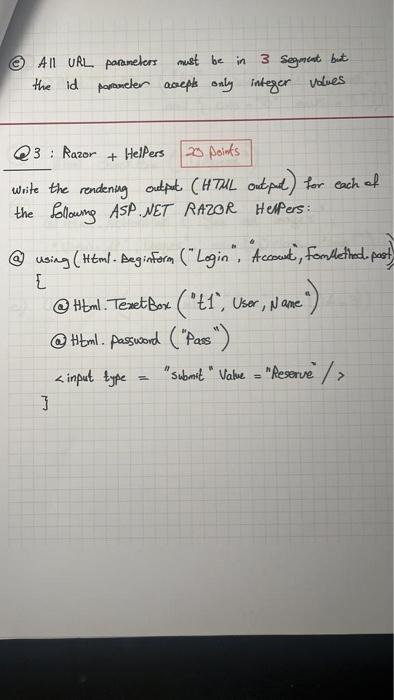 ⓔ All URL parameters must be in 3 segment but
the id parameter accepts only integer values
Q3 : Razor + Helpers 20 points
Write the rendening output (HTML output) for each of
the following ASP.NET RAZOR Helpers:
@ using (Html.Beginform ("Login", "Account", FormMethod.post)
{
@ Html.TexetBox ("t1", User, Name")
@ Html.password ("Pass")
<input type = "submit" Value = "Reserve" />
}